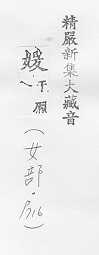 精嚴新集大藏音
嫂 下 厠
(女部·916)